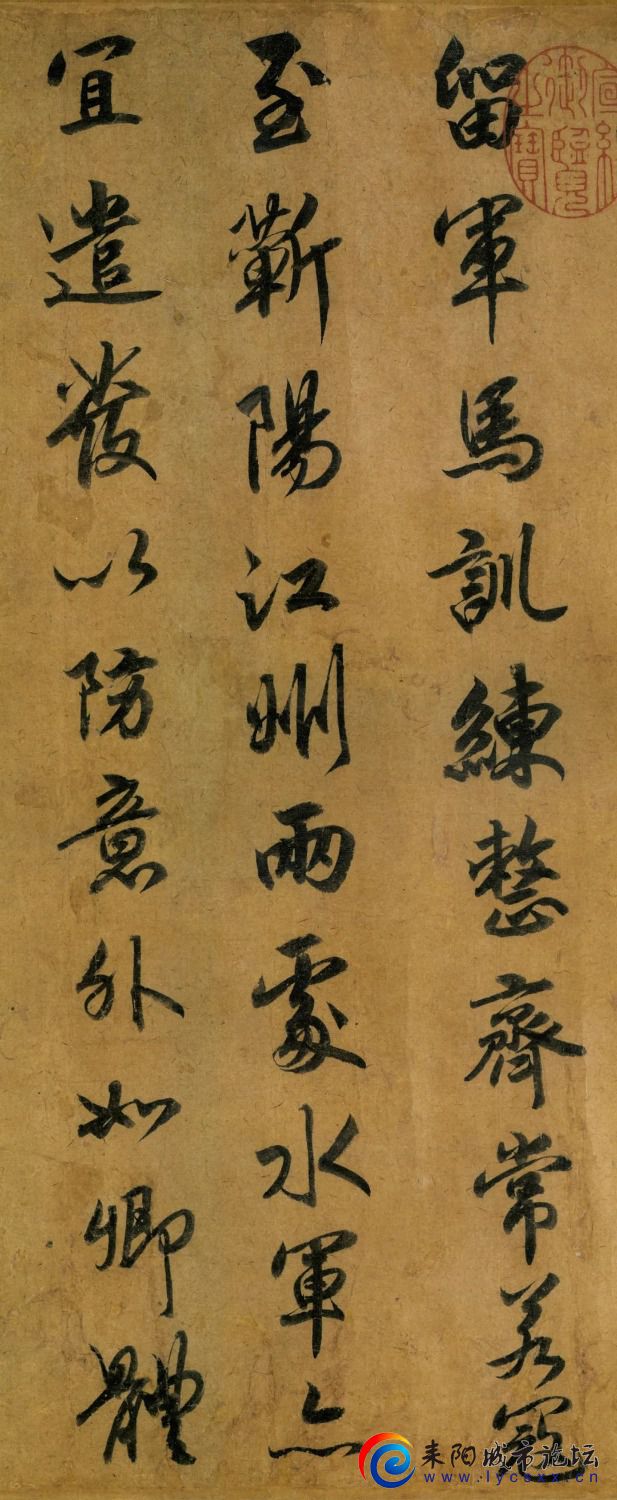 宣統御覽之寶
留軍馬訓練整齊常若寇
至蘄陽江州兩處水軍亦
宜遣發以防意外如卿體
耒阳城市论坛
www.lycsxx.cn